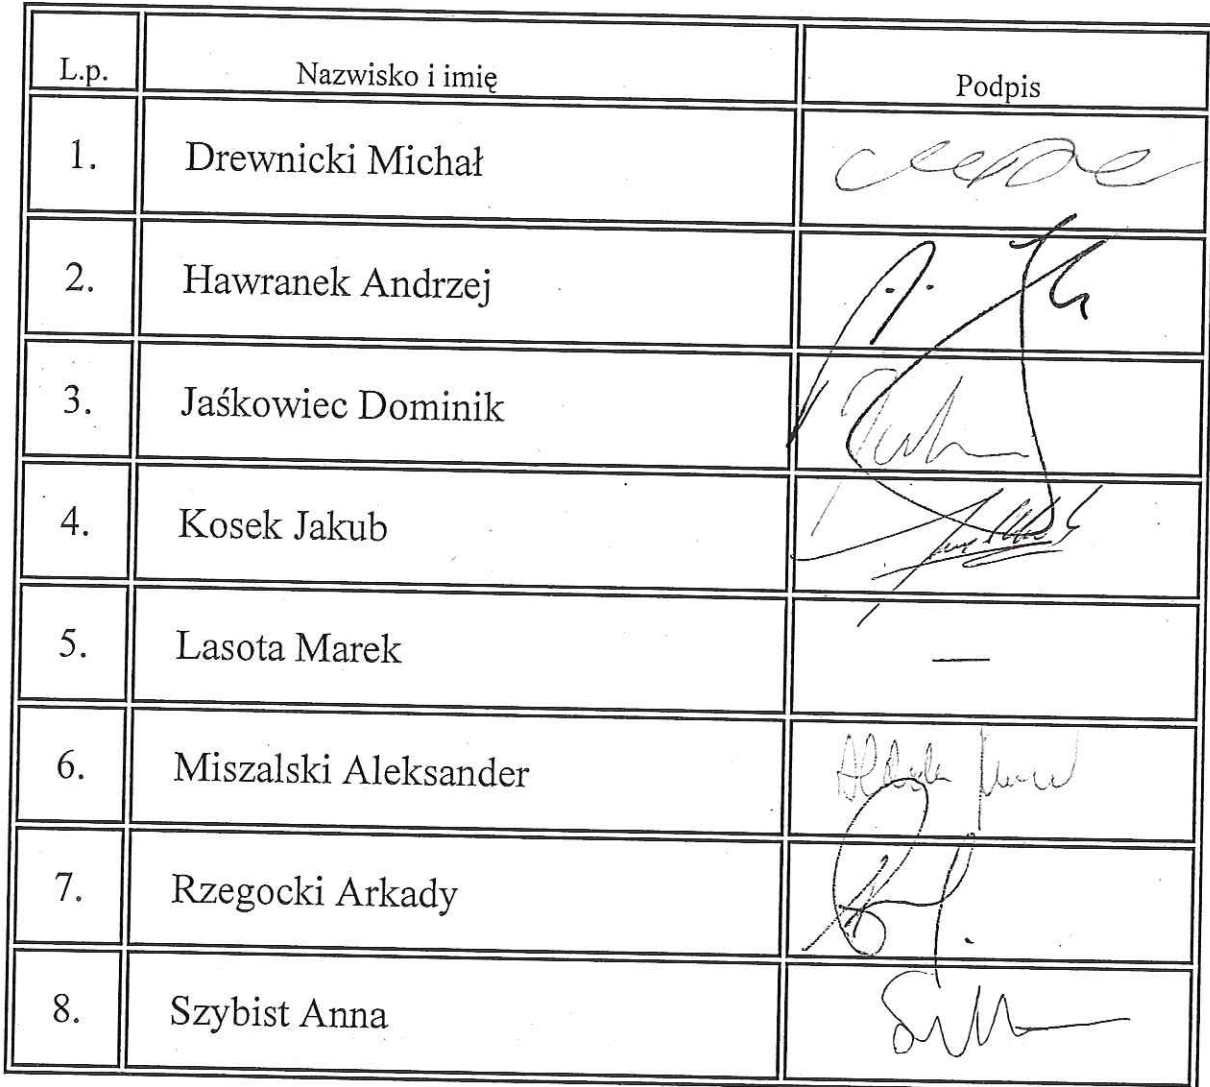 L.p. Nazwisko i imię Podpis
1. Drewnicki Michał
2. Hawranek Andrzej
3. Jaśkowiec Dominik
4. Kosek Jakub
5. Lasota Marek —
6. Miszalski Aleksander
7. Rzegocki Arkady
8. Szybist Anna